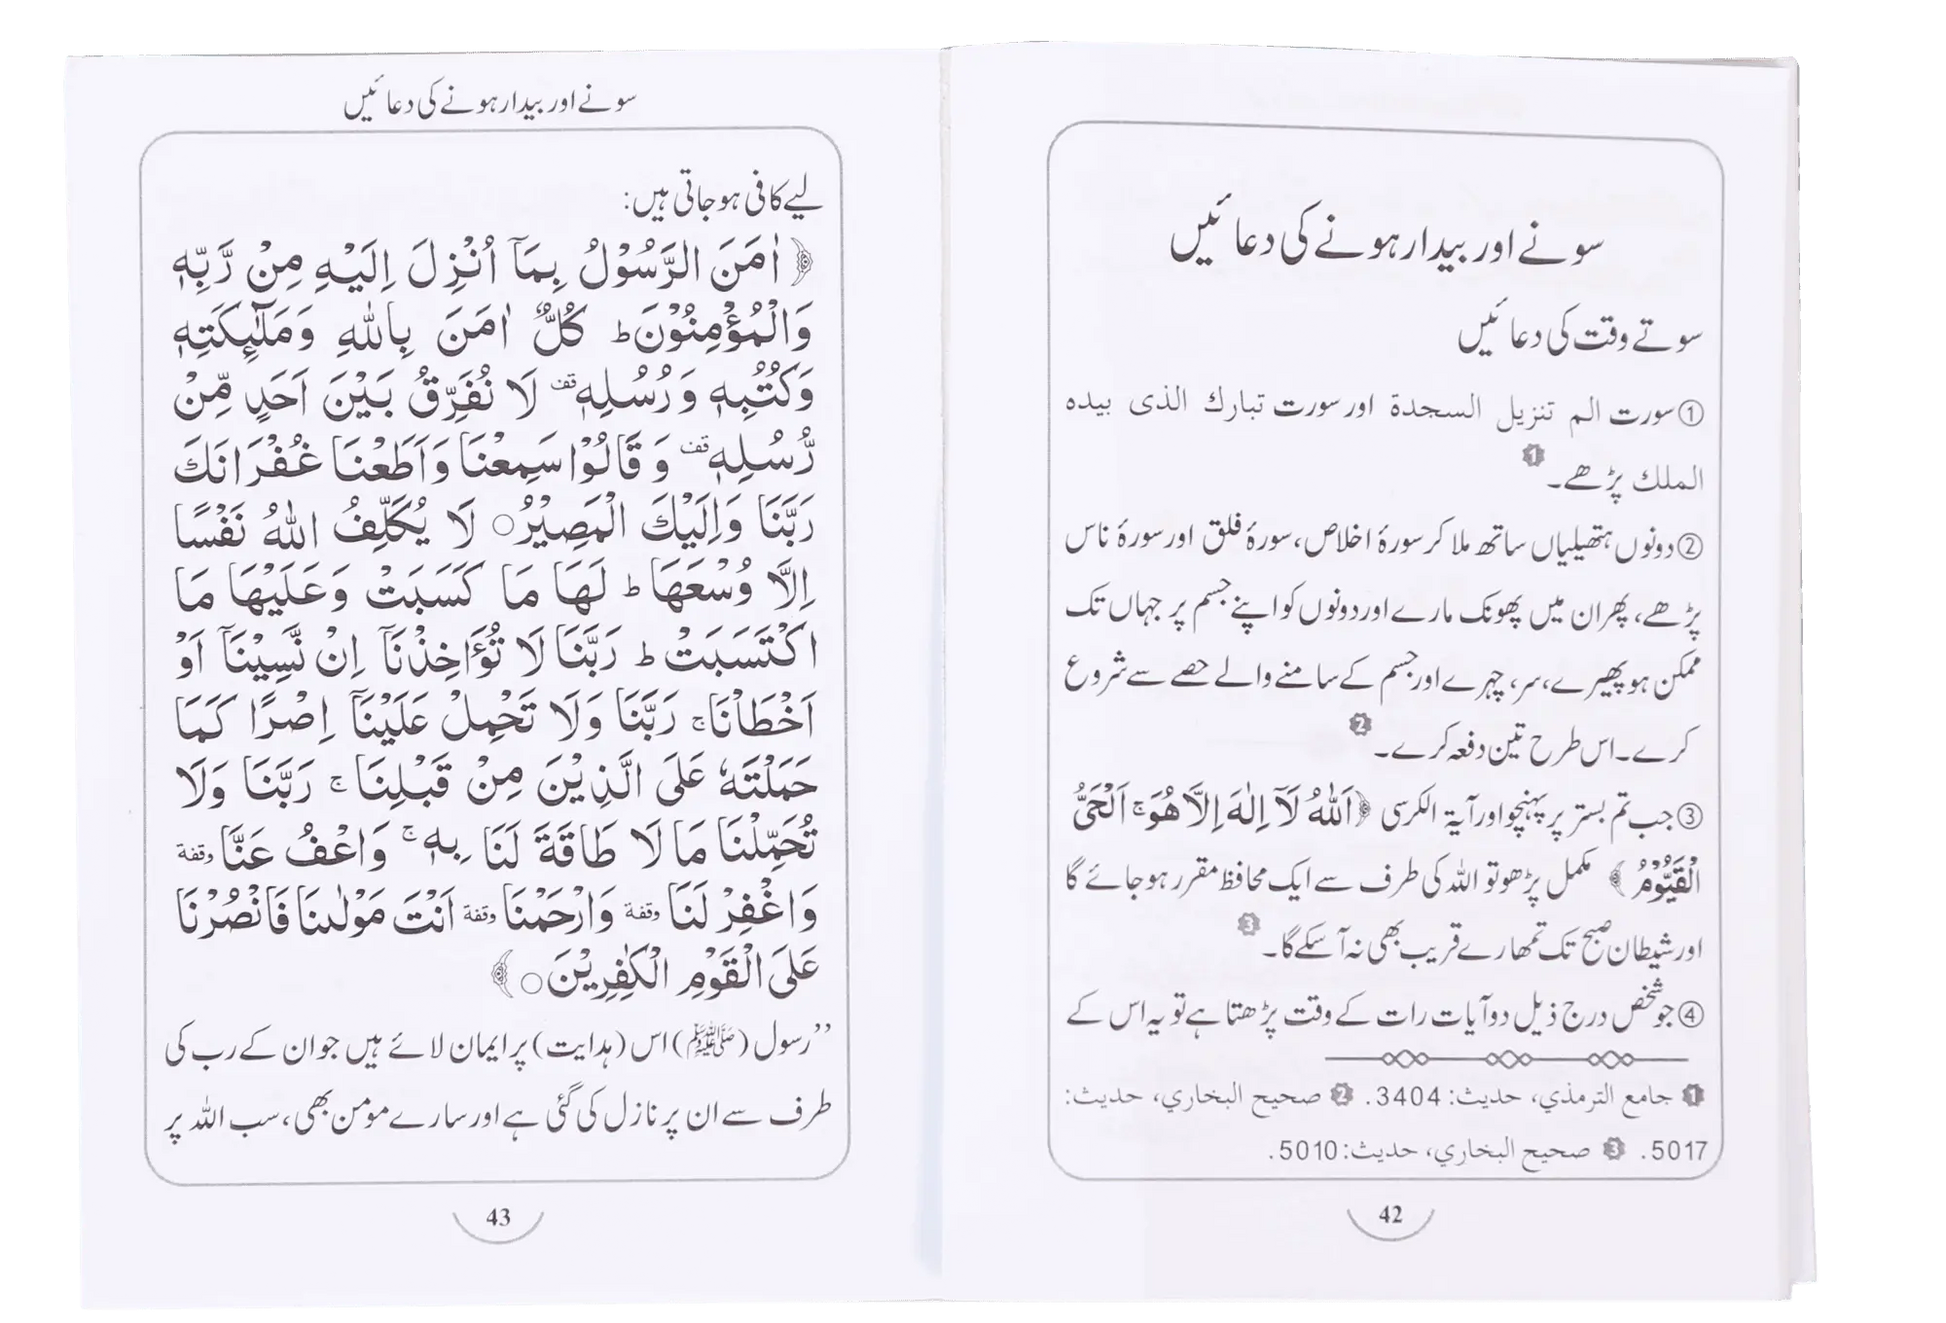 سونے اور بیدار ہونے کی دعائیں
سوتے وقت کی دعائیں
① سورت الم تنزیل السجدة اور سورت تبارك الذی بیده
الملك پڑھے۔ 1
② دونوں ہتھیلیاں ساتھ ملا کر سورۂ اخلاص، سورۂ فلق اور سورۂ ناس
پڑھے، پھر ان میں پھونک مارے اور دونوں کو اپنے جسم پر جہاں تک
ممکن ہو پھیرے، سر، چہرے اور جسم کے سامنے والے حصے سے شروع
کرے۔ اس طرح تین دفعہ کرے۔ 2
③ جب تم بستر پر پہنچو اور آیة الکرسی ﴿اَللّٰهُ لَآ اِلٰهَ اِلَّا هُوَ ۚ اَلْحَىُّ
الْقَيُّوْمُ﴾ مکمل پڑھو تو اللہ کی طرف سے ایک محافظ مقرر ہو جائے گا
اور شیطان صبح تک تمھارے قریب بھی نہ آ سکے گا۔ 3
④ جو شخص درج ذیل دو آیات رات کے وقت پڑھتا ہے تو یہ اس کے
1 جامع الترمذي، حديث: 3404. 2 صحيح البخاري، حديث:
5017. 3 صحيح البخاري، حديث: 5010.
42
سونے اور بیدار ہونے کی دعائیں
لیے کافی ہو جاتی ہیں:
﴿اٰمَنَ الرَّسُوْلُ بِمَآ اُنْزِلَ اِلَيْهِ مِنْ رَّبِّهٖ
وَالْمُؤْمِنُوْنَ ؕ كُلٌّ اٰمَنَ بِاللّٰهِ وَمَلٰٓئِكَتِهٖ
وَكُتُبِهٖ وَرُسُلِهٖ قف لَا نُفَرِّقُ بَيْنَ اَحَدٍ مِّنْ
رُّسُلِهٖ قف وَقَالُوْا سَمِعْنَا وَاَطَعْنَا غُفْرَانَكَ
رَبَّنَا وَاِلَيْكَ الْمَصِيْرُ○ لَا يُكَلِّفُ اللّٰهُ نَفْسًا
اِلَّا وُسْعَهَا ؕ لَهَا مَا كَسَبَتْ وَعَلَيْهَا مَا
اكْتَسَبَتْ ؕ رَبَّنَا لَا تُؤَاخِذْنَآ اِنْ نَّسِيْنَآ اَوْ
اَخْطَاْنَا ۚ رَبَّنَا وَلَا تَحْمِلْ عَلَيْنَآ اِصْرًا كَمَا
حَمَلْتَهٗ عَلَى الَّذِيْنَ مِنْ قَبْلِنَا ۚ رَبَّنَا وَلَا
تُحَمِّلْنَا مَا لَا طَاقَةَ لَنَا بِهٖ ۚ وَاعْفُ عَنَّا وقفة
وَاغْفِرْ لَنَا وقفة وَارْحَمْنَا وقفة اَنْتَ مَوْلٰىنَا فَانْصُرْنَا
عَلَى الْقَوْمِ الْكٰفِرِيْنَ○﴾
’’رسول (ﷺ) اس (ہدایت) پر ایمان لائے ہیں جو ان کے رب کی
طرف سے ان پر نازل کی گئی ہے اور سارے مومن بھی، سب اللہ پر
43